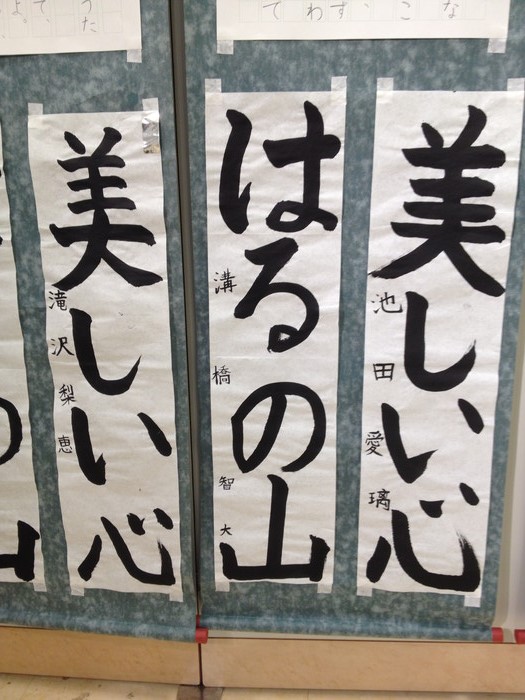 美しい心
池田愛璃
はるの山
溝橋智大
美しい心
滝沢梨恵
なこ
わず、
て
うた
て、
よ。